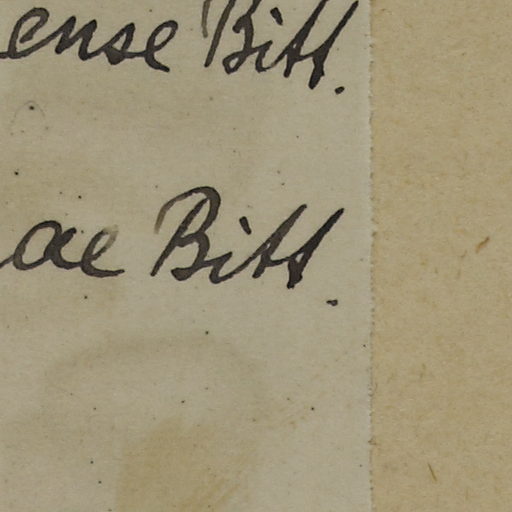 ense Bitt.
ae Bitt.